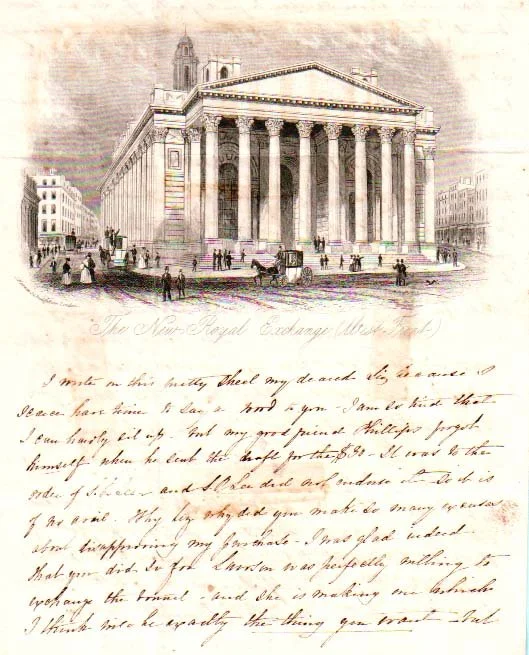 The New Royal Exchange (West Front)
I write on this pretty sheet my dearest Liz because I
scarce have time to say a word to you - I am so tired that
I can hardly sit up - But my good friend Phillips forgot
himself when he sent the draft for the $30 - It was to the
order of and S. P. Lee did not endorse it So it is
of no avail. Why Liz why did you make so many excuses
about disapproving my purchase - I was glad indeed
that you did. So for Lawson was perfectly willing to
exchange the bonnet - and she is making one which
I think will be exactly the thing you want - But